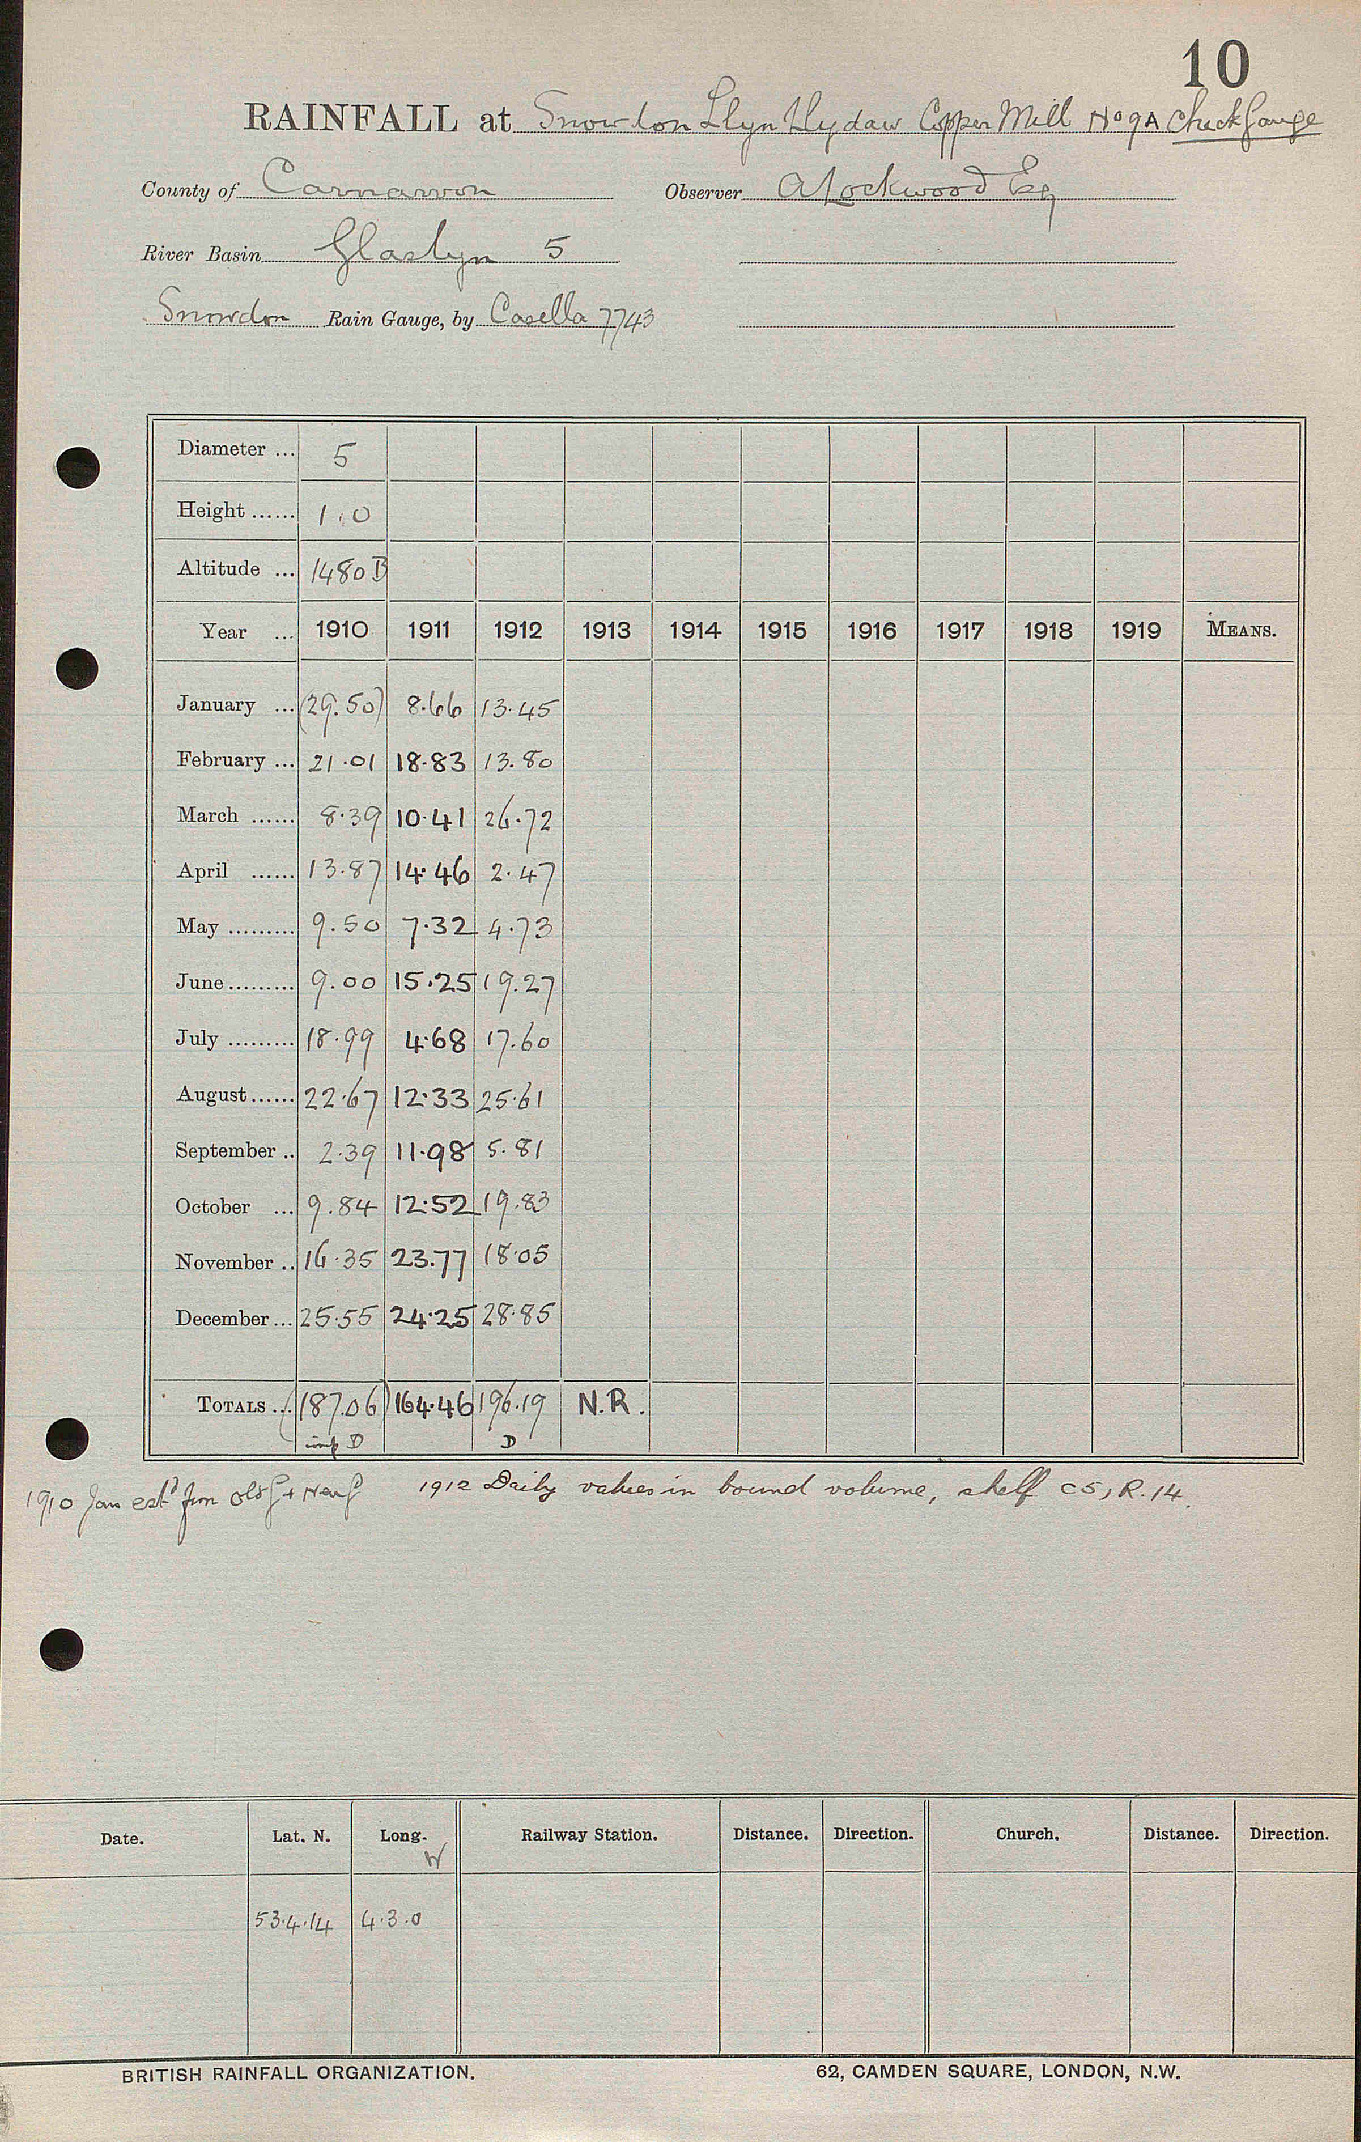 10
RAINFALL at Snowdon Llyn Llydaw Copper Mill No 9A Check Gauge
County of Carnarvon Observer A Lockwood Esq
River Basin Glaslyn 5
Snowdon Rain Gauge, by Casella 7743
Diameter ... 5
Height ...... 1.0
Altitude ... 1480 B
Year ... 1910 1911 1912 1913 1914 1915 1916 1917 1918 1919 MEANS.
January ... (29.50) 8.66 13.45
February ... 21.01 18.83 13.80
March ...... 8.39 10.41 26.72
April ...... 13.87 14.46 2.47
May ......... 9.50 7.32 4.73
June ......... 9.00 15.25 19.27
July ......... 18.99 4.68 17.60
August ...... 22.67 12.33 25.61
September .. 2.39 11.98 5.81
October ... 9.84 12.52 19.83
November .. 16.35 23.77 18.05
December ... 25.55 24.25 28.85
TOTALS ... (187.06) 164.46 196.19 N.R.
D D
1910 Jan estd from old G + New G 1912 Daily values in bound volume, shelf C5, R.14.
Date. Lat. N. Long. W Railway Station. Distance. Direction. Church. Distance. Direction.
53.4.14 4.3.0
BRITISH RAINFALL ORGANIZATION. 62, CAMDEN SQUARE, LONDON, N.W.